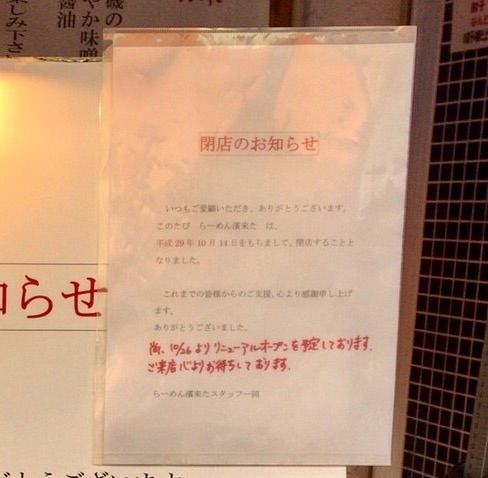 閉店のお知らせ
いつもご愛顧いただき、ありがとうございます。
このたび　らーめん濱来た　は、
平成29年10月14日をもちまして、閉店することと
なりました。
これまでの皆様からのご支援、心より感謝申し上げ
ます。
ありがとうございました。
尚、10/26より リニューアルオープンを予定しております。
ご来店心よりお待ちしております。
らーめん濱来たスタッフ一同
磯の
やか味噌
醤油
楽しみ下さい
らせ